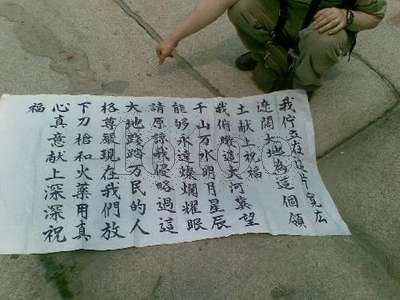 我佇立在這片寬広
遼闊大地為這個領
土献上祝福
我俯瞰這大河冀望
千山万水明月星辰
能够永遠燦爛耀眼
請原諒我侵略過這
大地踐踏万民的人
格尊嚴現在我們放
下刀槍和火藥用真
心真意献上深深祝
福